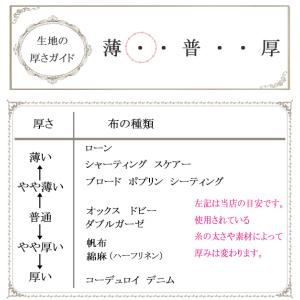 生地の
厚さガイド
薄・・普・・厚
厚さ 布の種類
薄い
ローン
シャーティング スケアー
やや薄い
ブロード ポプリン シーティング
普通
オックス ドビー
ダブルガーゼ
やや厚い
帆布
綿麻(ハーフリネン)
厚い
コーデュロイ デニム
左記は当店の目安です。
使用されている
糸の太さや素材によって
厚みは変わります。